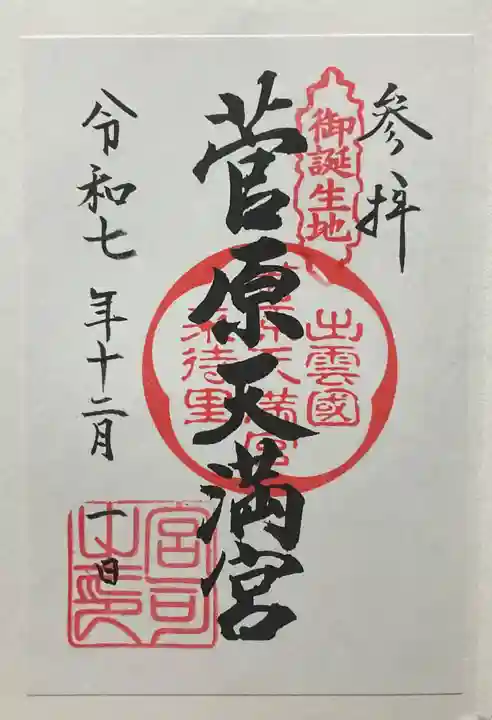 参拝
御誕生地
菅原天満宮
出雲國
菅原天満宮
来待里
令和七年十二月
十一日
宮司之印